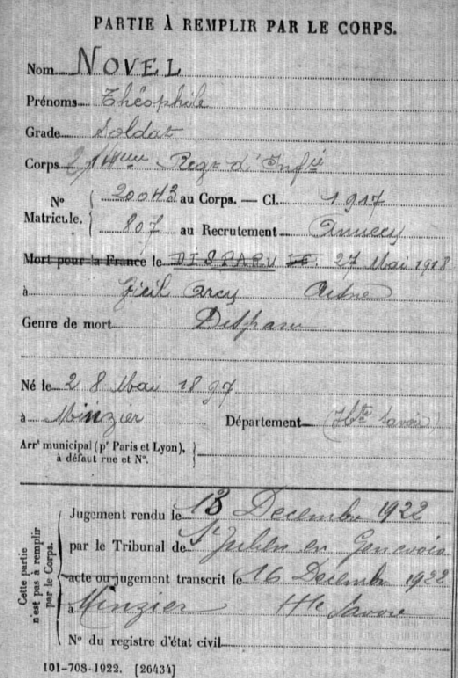 PARTIE À REMPLIR PAR LE CORPS.
Nom NOVEL
Prénoms Théophile
Grade Soldat
Corps Regt d'Infie
No 20043 au Corps. — Cl. 1917
Matricule. 807 au Recrutement Annecy
Mort pour la France le DISPARU LE 27 Mai 1918
à Aisne
Genre de mort Disparu
Né le 28 Mai 1897
à Minzier Département Hte Savoie
Arrt municipal (pr Paris et Lyon),
à défaut rue et No.
Cette partie
n'est pas à remplir
par le Corps.
Jugement rendu le 13 Decembre 1922
par le Tribunal de St Julien en Genevois
acte ou jugement transcrit le 16 Decembre 1922
à Minzier Hte Savoie
No du registre d'état civil
101-708-1922. [26434]